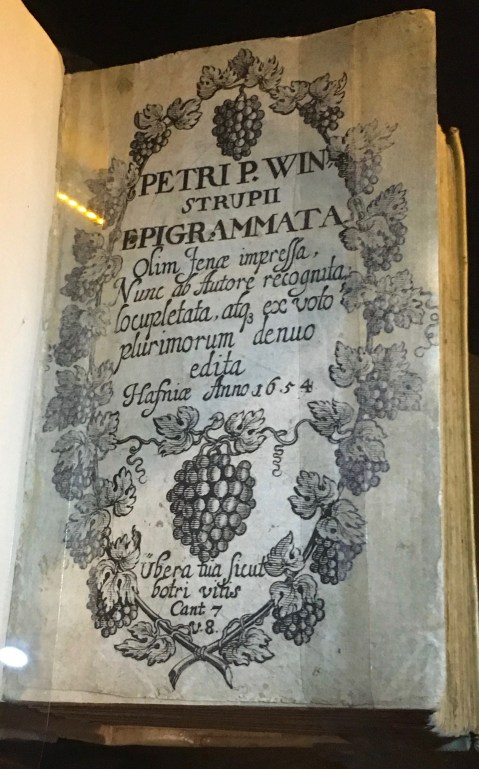 PETRI P. WIN,
STRUPII
EPIGRAMMATA
Olim Jenæ impressa,
Nunc ab Autore recognita,
locupletata, atqꝫ ex voto
plurimorum denuo
edita
Hafniæ Anno 1654
Ubera tua sicut
botri vitis
Cant 7
v. 8.